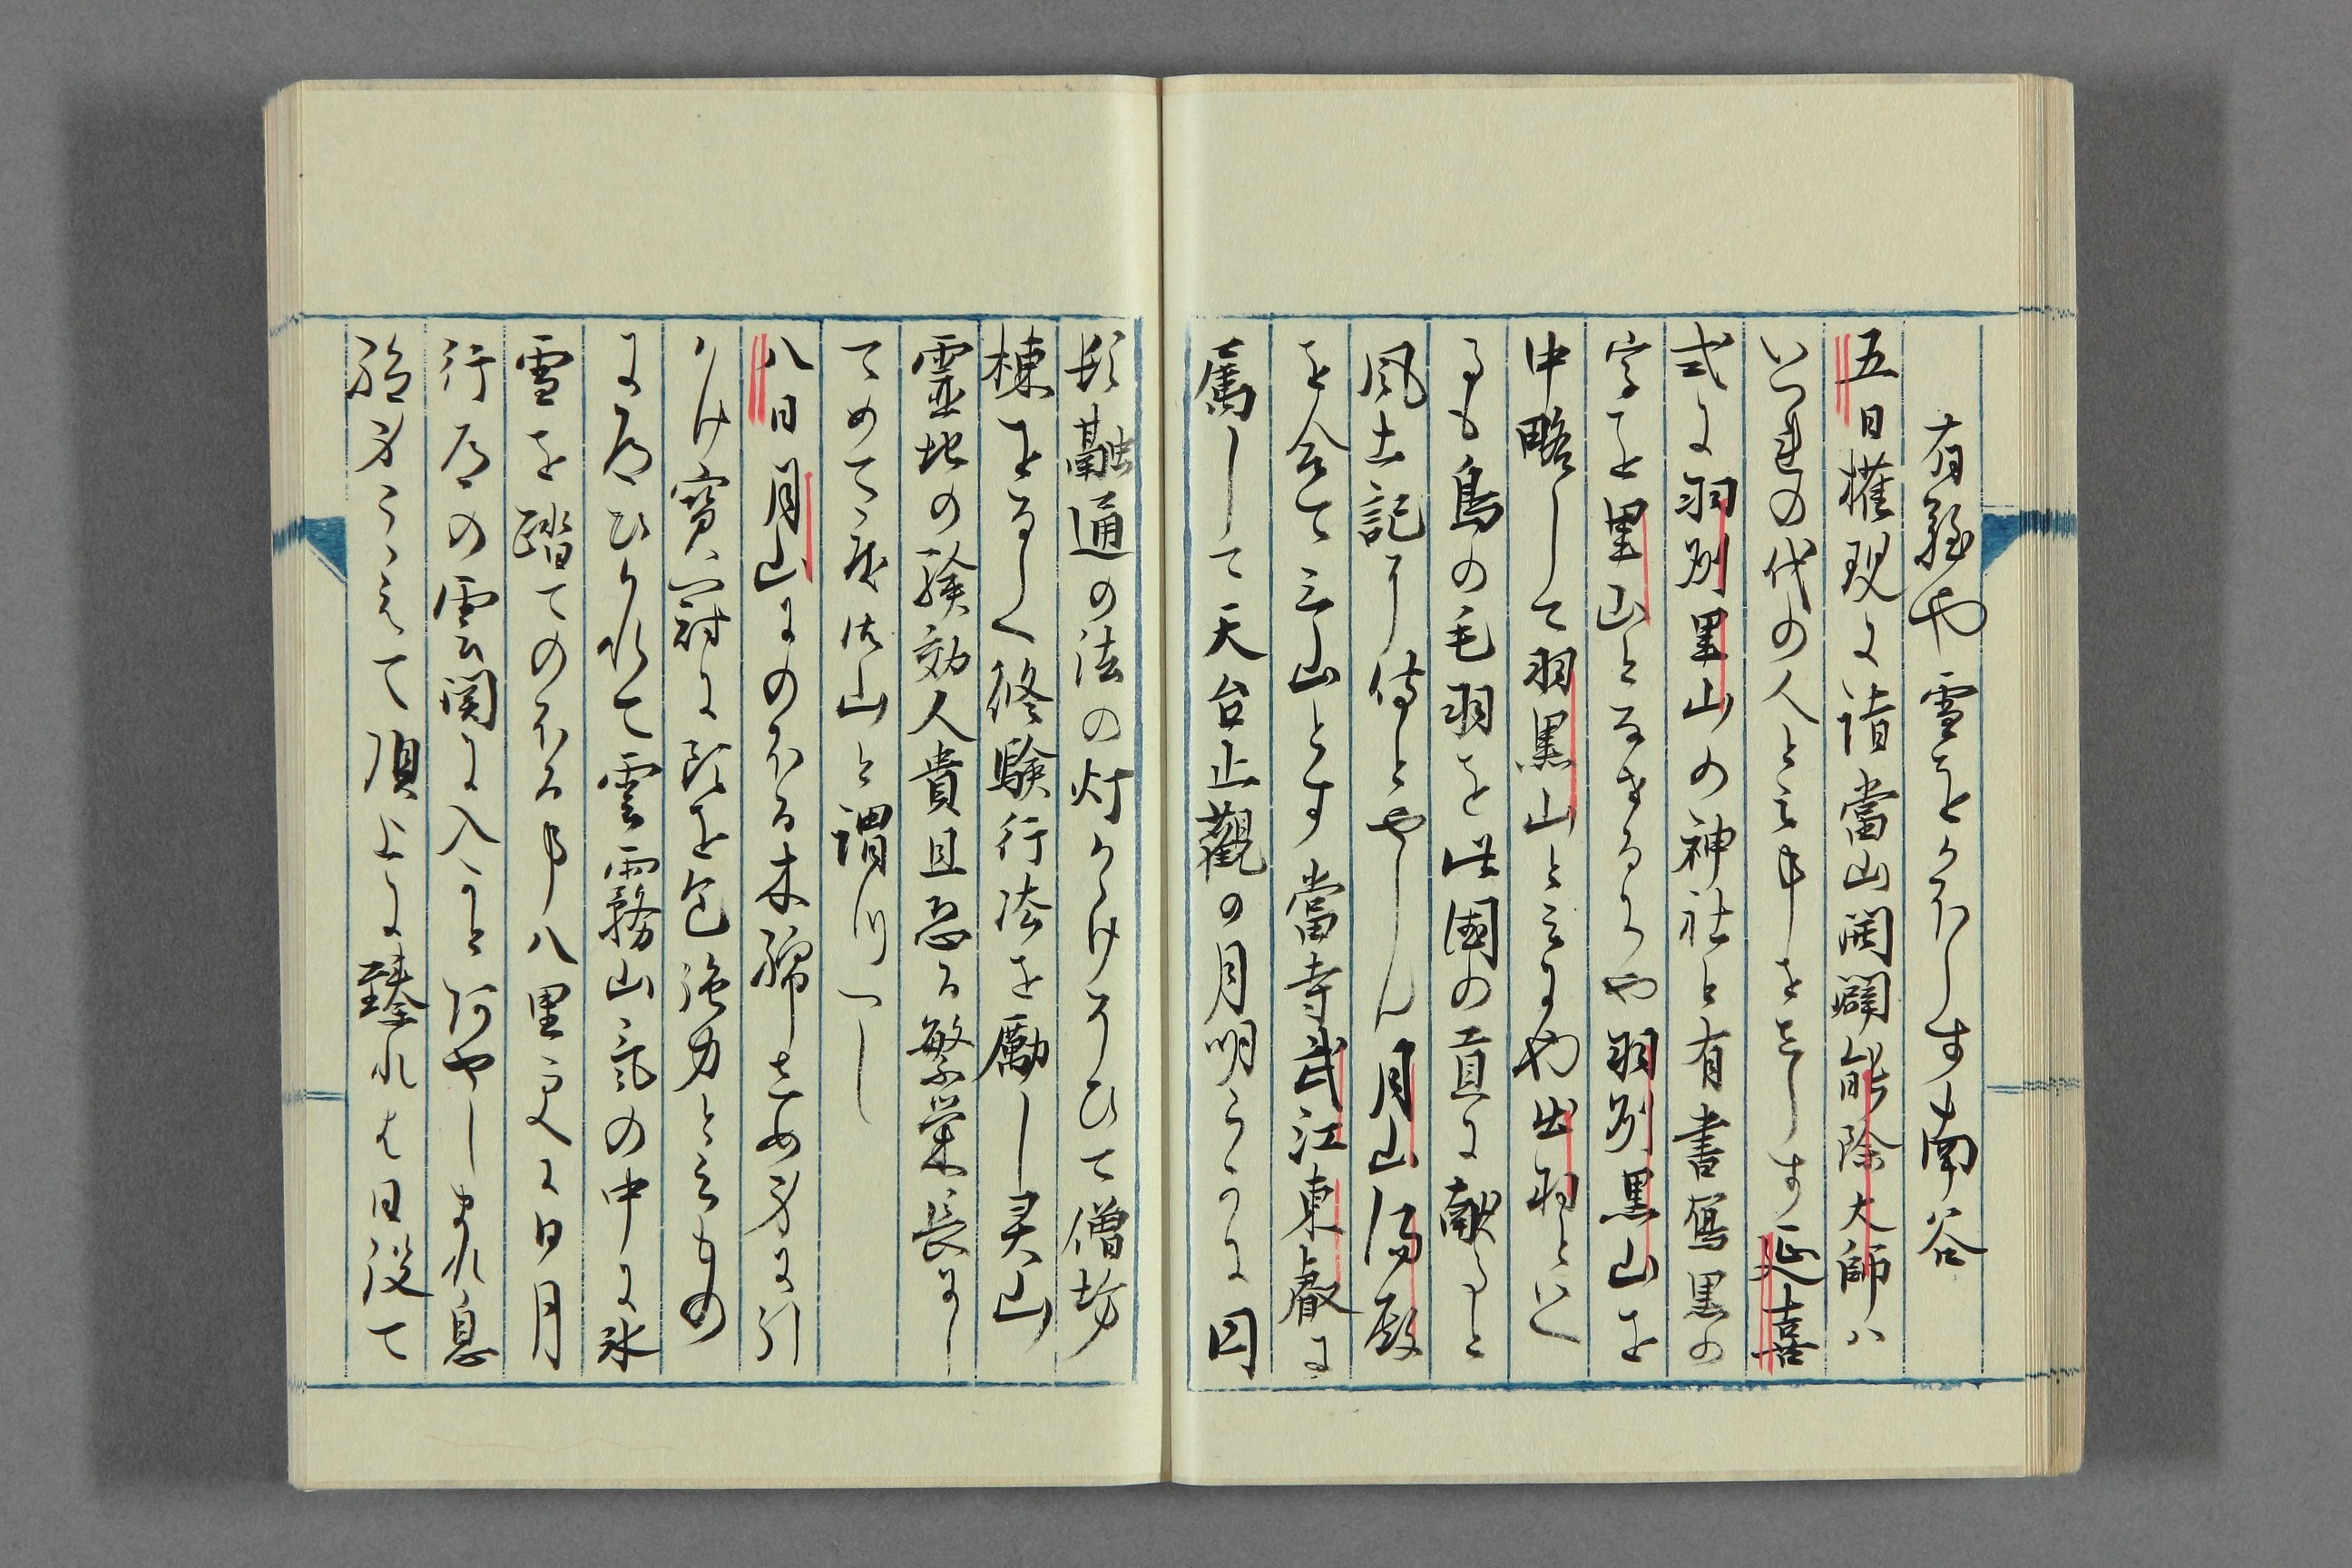 有難や雪をかほらす南谷
五日権現に詣當山開闢能除大師ハ
いつれの代の人と云事をしらす延喜
式に羽州里山の神社と有書寫黒の
字を里山となせるにや羽州黒山を
中略して羽黒山と云にや出羽といへ
るも鳥の毛羽を此國の貢に献ると
風土記に侍とやらん月山湯殿
を合て三山とす當寺武江東叡に
属して天台止觀の月明らかに円
頓融通の法の灯かゝけそひて僧坊
棟をならへ修験行法を励し灵山
霊地の験効人貴且恐る繁栄長に
してめて度御山と謂つへし
八日月山にのほる木綿しめ身に引
かけ寳冠に頭を包強力と云もの
に道ひかれて雲霧山気の中に氷
雪を踏てのほる事八里更に日月
行道の雲関に入かとあやしまれ息
絶身こゝえて頂上に臻れは日没て